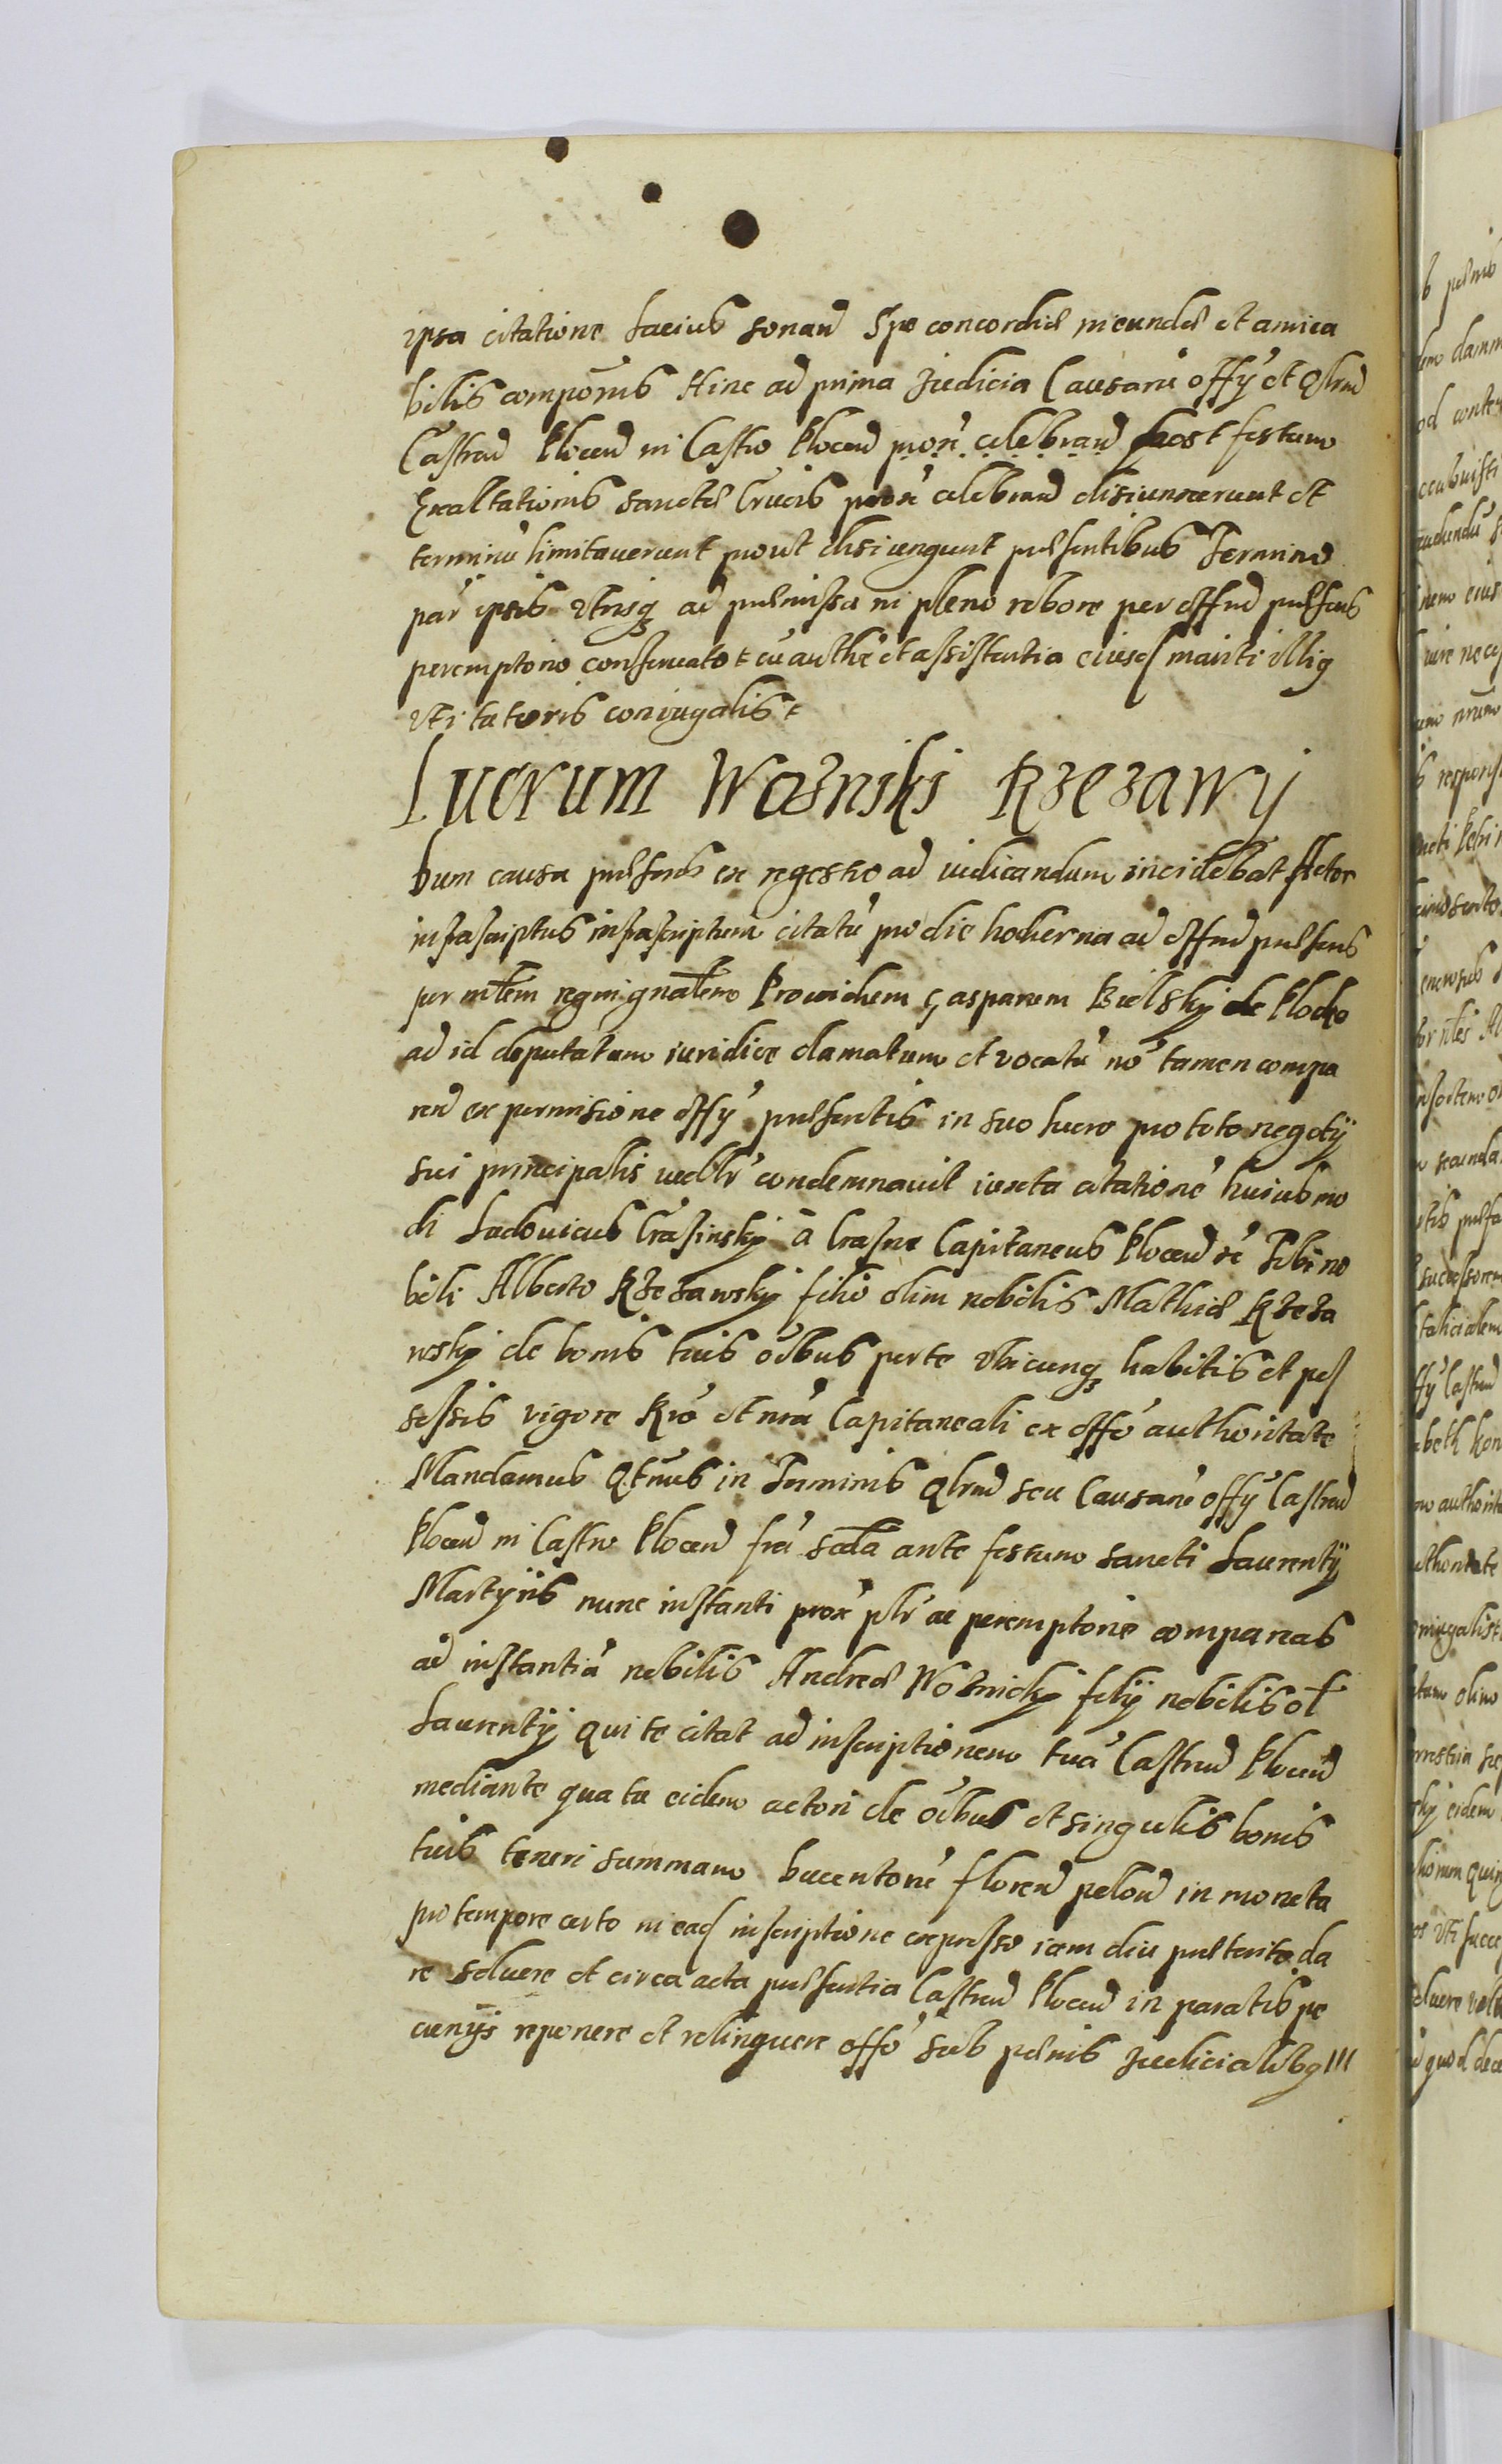 ipsa citatione Lacius sonand Spe concordiæ ineundæ et amica
bilis compoñis Hinc ad prima Judicia Causarũ offÿ et Qlrũ
Castreñ Ploceñ in Castro Ploceñ prox celebrand post festum
Exaltationis sanctæ Crucis prox celebrand disiunxerunt et
terminũ limitauerunt prout disiungunt præsentibus Termino
par ipsis vtrisq3 ad præmissa in pleno robore per offm præsens
peremptorio conseruato cũ authe et assistentia eiusd mariti illiq
vti tutoris coniugalis
Lucrum Wozniski Rzezawÿ
Dum causa præsens ex regestro ad iudicandum incidebat Actor
infrascriptus infrascriptum citatũ pro die hodierna ad offm præsens
per mtem regnignalem Prouidum Casparem Bielskÿ de Plocko
ad id deputatum iuridice clamatum et vocatũ nõ tamen compa
ren ex permissione offÿ præsentis in suo lucro pro toto negotÿ
sui principalis vedlr condemnauit iuxta citationẽ huiusmo
di Ludouicus Crasinskÿ à Crasne Capitaneus Ploceñ Tibi no
bili Alberto Rzezawskÿ filio olim nobilis Mathiæ Rzeza
wskÿ de bonis tuis oĩbus per te vbicunq3 habitis et pos
sessis vigore Rió et nrã Capitaneali ex offo authoritate
Mandamus Qtnus in Terminis Qlrũ seu Causarũ offÿ Castreñ
Ploceñ in Castro Ploceñ fria scda ante festum sancti Laurentÿ
Martyris nunc instanti prox plr ac peremptorie compareas
ad instantiã nobilis Andreæ Woznickÿ filÿ nobilis ol
Laurentÿ qui te citat ad inscriptionem tuã Castreñ Ploceñ
mediante qua tu eidem actori de oĩbus et singulis bonis
tuis teneri summam Ducentorũ floren polon in moneta
pro tempore certo in ead inscriptione expresso iam diu præterito da
re soluere et circa acta præsentia Castreñ Ploceñ in paratis pe
cunÿs reponere et relinquere offo sub pænis Judicialibq